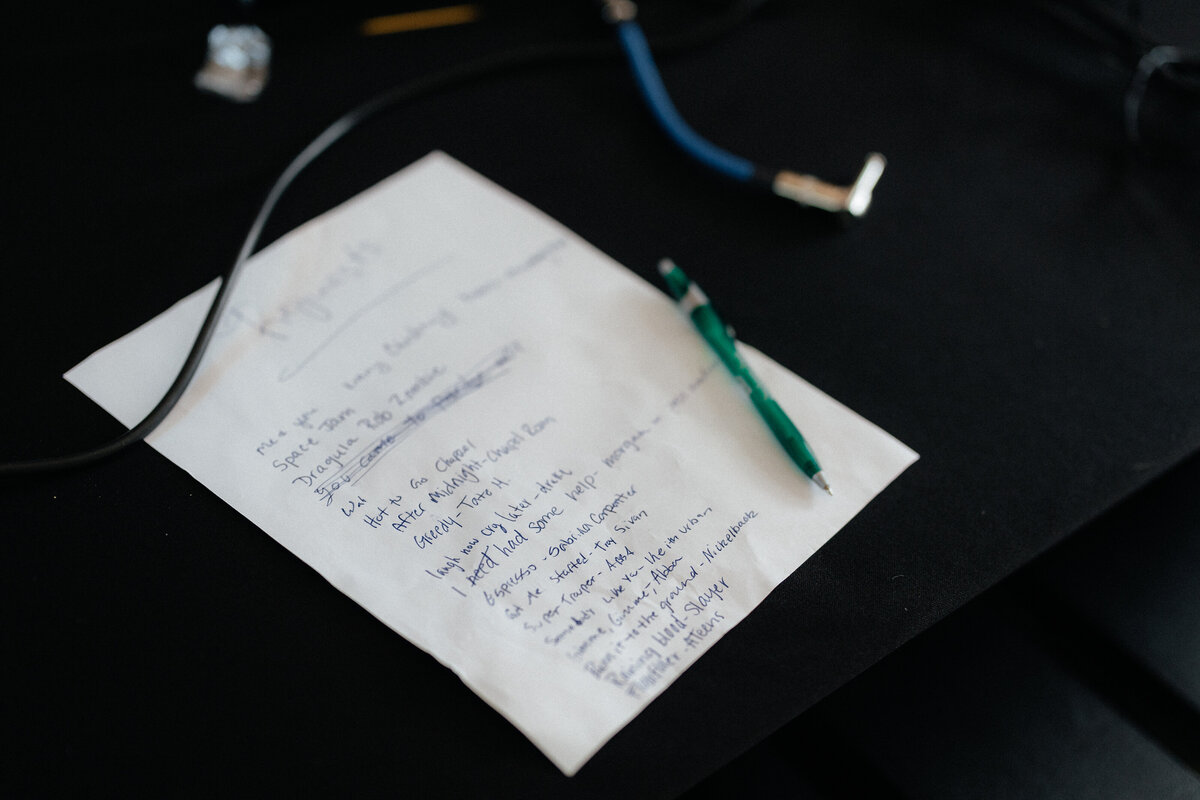 Requests
me + you
Space Jam
Dragula Rob Zombie
You Came to
Wat
Hot to Go Chapel
After Midnight - Chapel Roan
Greedy - Tate M.
laugh now cry later - drake
I need had some help - morgan -
Espresso - Sabrina Carpenter
Got Me Started - Troy Sivan
Super Trouper - A
Somebody Like You - Keith urban
Gimme, Gimme - Abba
Burn it to the ground - Nickelback
Raining blood - Slayer
Floorfiller - ATeens